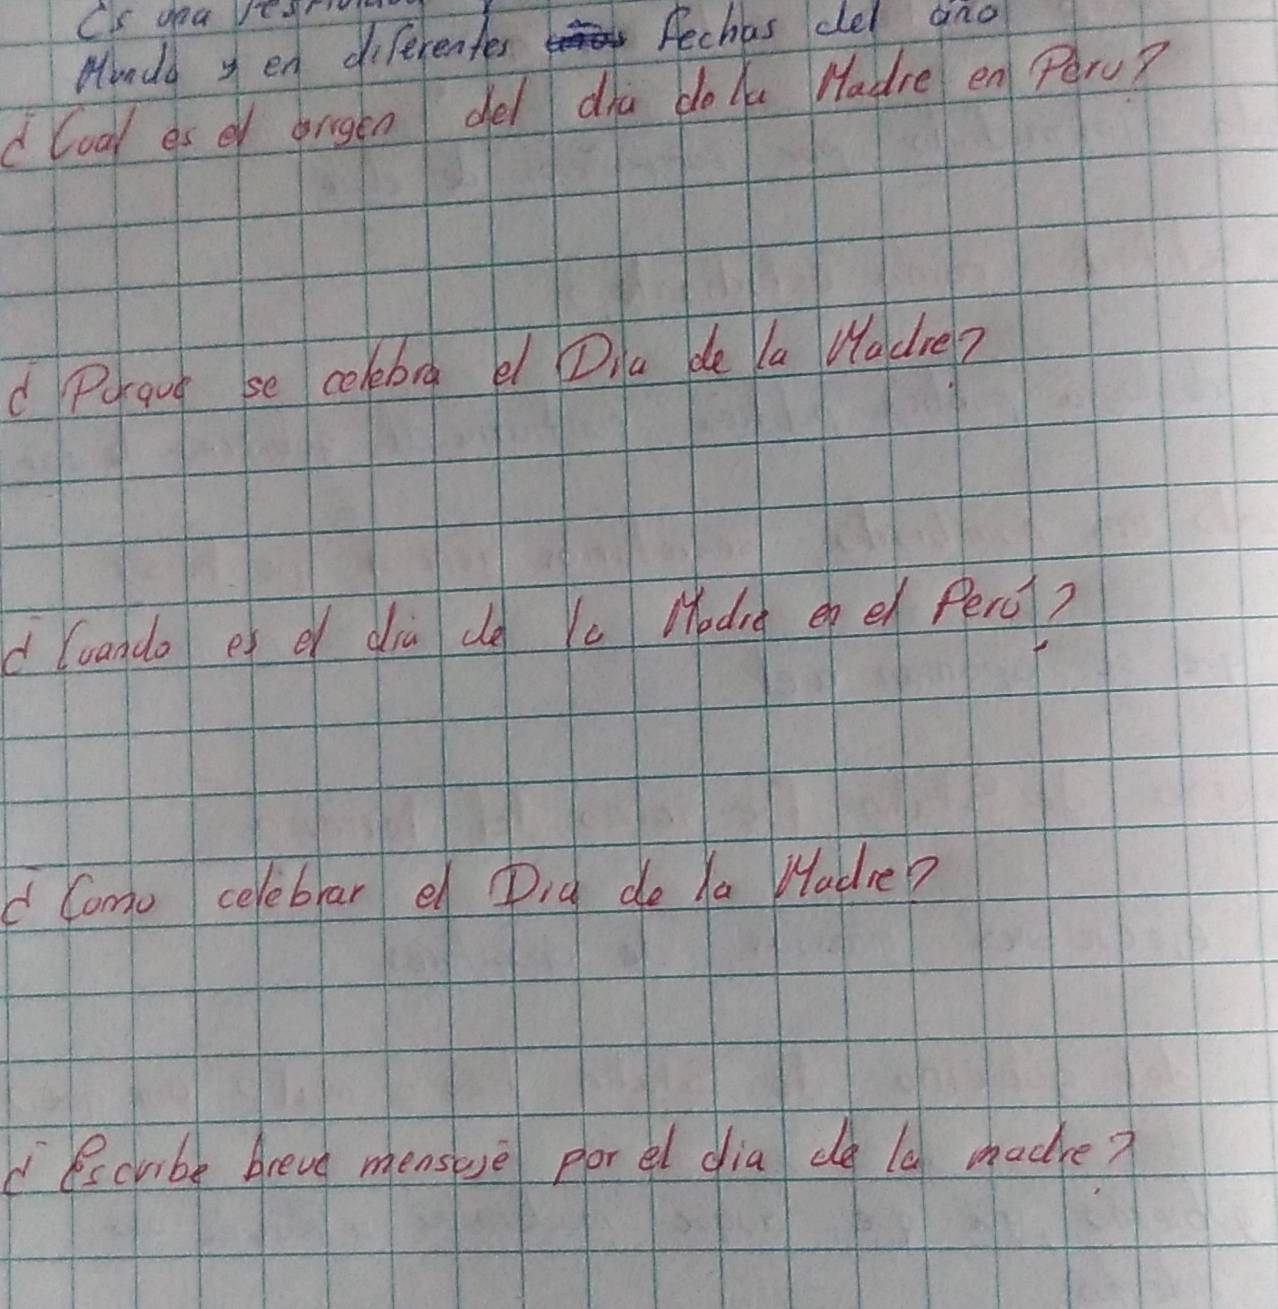 Es una
Mundo y en diferentes fechas del año
¿Cual es el origen del dia de la Madre en Peru?
¿Porque se celebra el Dia de la Madre?
¿Cuando es el dia de la Madre en el Perú?
¿Como celebrar el Dia de la Madre?
¿Escribe breve mensaje por el dia de la madre?